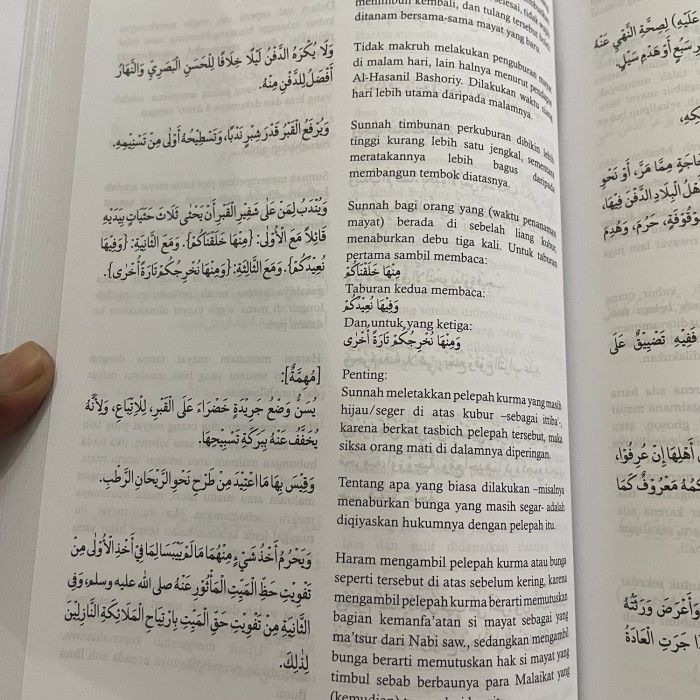 menimbun kembali, dan tulang tersebut
ditanam bersama-sama mayat yang baru.
وَلَا يُكْرَهُ الدَّفْنُ لَيْلًا خِلَافًا لِلْحَسَنِ الْبَصْرِيِّ وَالنَّهَارُ
أَفْضَلُ لِلدَّفْنِ مِنْهُ.
Tidak makruh melakukan penguburan mayat
di malam hari, lain halnya menurut pendapat
Al-Hasanil Bashoriy. Dilakukan waktu siang
hari lebih utama daripada malamnya.
وَيُرْفَعُ الْقَبْرُ قَدَرَ شِبْرٍ نَدْبًا، وَتَسْطِيْحُهُ أَوْلَى مِنْ تَسْنِيْمِهِ.
Sunnah timbunan perkuburan dibikin lebih
tinggi kurang lebih satu jengkal, sementara
meratakannya lebih bagus daripada
membangun tembok diatasnya.
وَيُنْدَبُ لِمَنْ عَلَى شَفِيْرِ الْقَبْرِ أَنْ يَحْثَى ثَلَاثَ حَثَيَاتٍ بِيَدَيْهِ
قَائِلًا مَعَ الْأُوْلَى: {مِنْهَا خَلَقْنَاكُمْ}. وَمَعَ الثَّانِيَةِ: {وَفِيْهَا
نُعِيْدُكُمْ}. وَمَعَ الثَّالِثَةِ: {وَمِنْهَا نُخْرِجُكُمْ تَارَةً أُخْرَى}.
Sunnah bagi orang yang (waktu penanaman
mayat) berada di sebelah liang kubur,
menaburkan debu tiga kali. Untuk taburan
pertama sambil membaca:
مِنْهَا خَلَقْنَاكُمْ
Taburan kedua membaca:
وَفِيْهَا نُعِيْدُكُمْ
Dan untuk yang ketiga:
وَمِنْهَا نُخْرِجُكُمْ تَارَةً أُخْرَى
[مُهِمَّةٌ]:
يُسَنُّ وَضْعُ جَرِيْدَةٍ خَضْرَاءَ عَلَى الْقَبْرِ، لِلْاِتِّبَاعِ، وَلِأَنَّهُ
يُخَفَّفُ عَنْهُ بِبَرَكَةِ تَسْبِيْحِهَا.
Penting:
Sunnah meletakkan pelepah kurma yang masih
hijau/seger di atas kubur –sebagai ittiba'-,
karena berkat tasbich pelepah tersebut, maka
siksa orang mati di dalamnya diperingan.
وَقِيْسَ بِهَا مَا اعْتِيْدَ مِنْ طَرْحِ نَحْوِ الرَّيْحَانِ الرَّطْبِ.
Tentang apa yang biasa dilakukan –misalnya
menaburkan bunga yang masih segar- adalah
diqiyaskan hukumnya dengan pelepah itu.
وَيَحْرُمُ أَخْذُ شَيْءٍ مِنْهُمَا مَا لَمْ يَيْبَسَا لِمَا فِي أَخْذِ الْأُوْلَى مِنْ
تَفْوِيْتِ حَظِّ الْمَيِّتِ الْمَأْثُوْرِ عَنْهُ صلى الله عليه وسلم، وَفِي
الثَّانِيَةِ مِنْ تَفْوِيْتِ حَقِّ الْمَيِّتِ بِارْتِيَاحِ الْمَلَائِكَةِ النَّازِلِيْنَ
لِذَلِكَ.
Haram mengambil pelepah kurma atau bunga
seperti tersebut di atas sebelum kering, karena
mengambil pelepah kurma berarti memutuskan
bagian kemanfa'atan si mayat sebagai yang
ma'tsur dari Nabi saw., sedangkan mengambil
bunga berarti memutuskan hak si mayat yang
timbul sebab berbaunya para Malaikat yang
(kemudian)
عَلَيْهِ) لِصِحَّةِ النَّهْيِ عَنْهُ
سَبُعٍ أَوْ هَدْمِ سَيْلٍ.
حَاجَةٍ مِمَّا مَرَّ، أَوْ نَحْوِ
أَهْلُ الْبِلَادِ الدَّفْنَ فِيْهَا،
مَوْقُوْفَةٍ، حَرُمَ، وَهُدِمَ
فَفِيْهِ تَضْيِيْقٌ عَلَى
أَهْلِهَا إِنْ عُرِفُوْا،
مَعْرُوْفٌ كَمَا
وَأَعْرَضَ وَرَثَتُهُ
جَرَتِ الْعَادَةُ